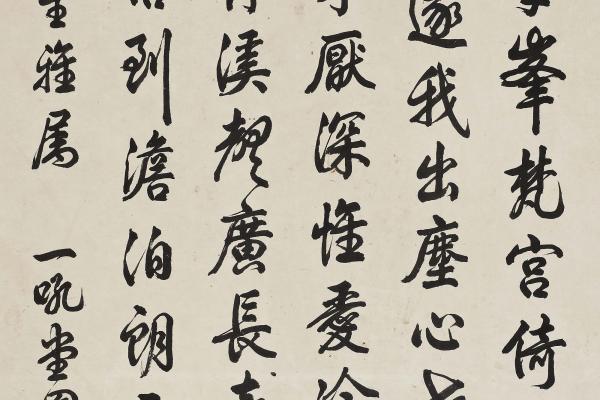 峯梵宮倚
遂我出塵心
厭深惟愛冷
溪聲廣長
到澹泊朗
雅属
一吼堂